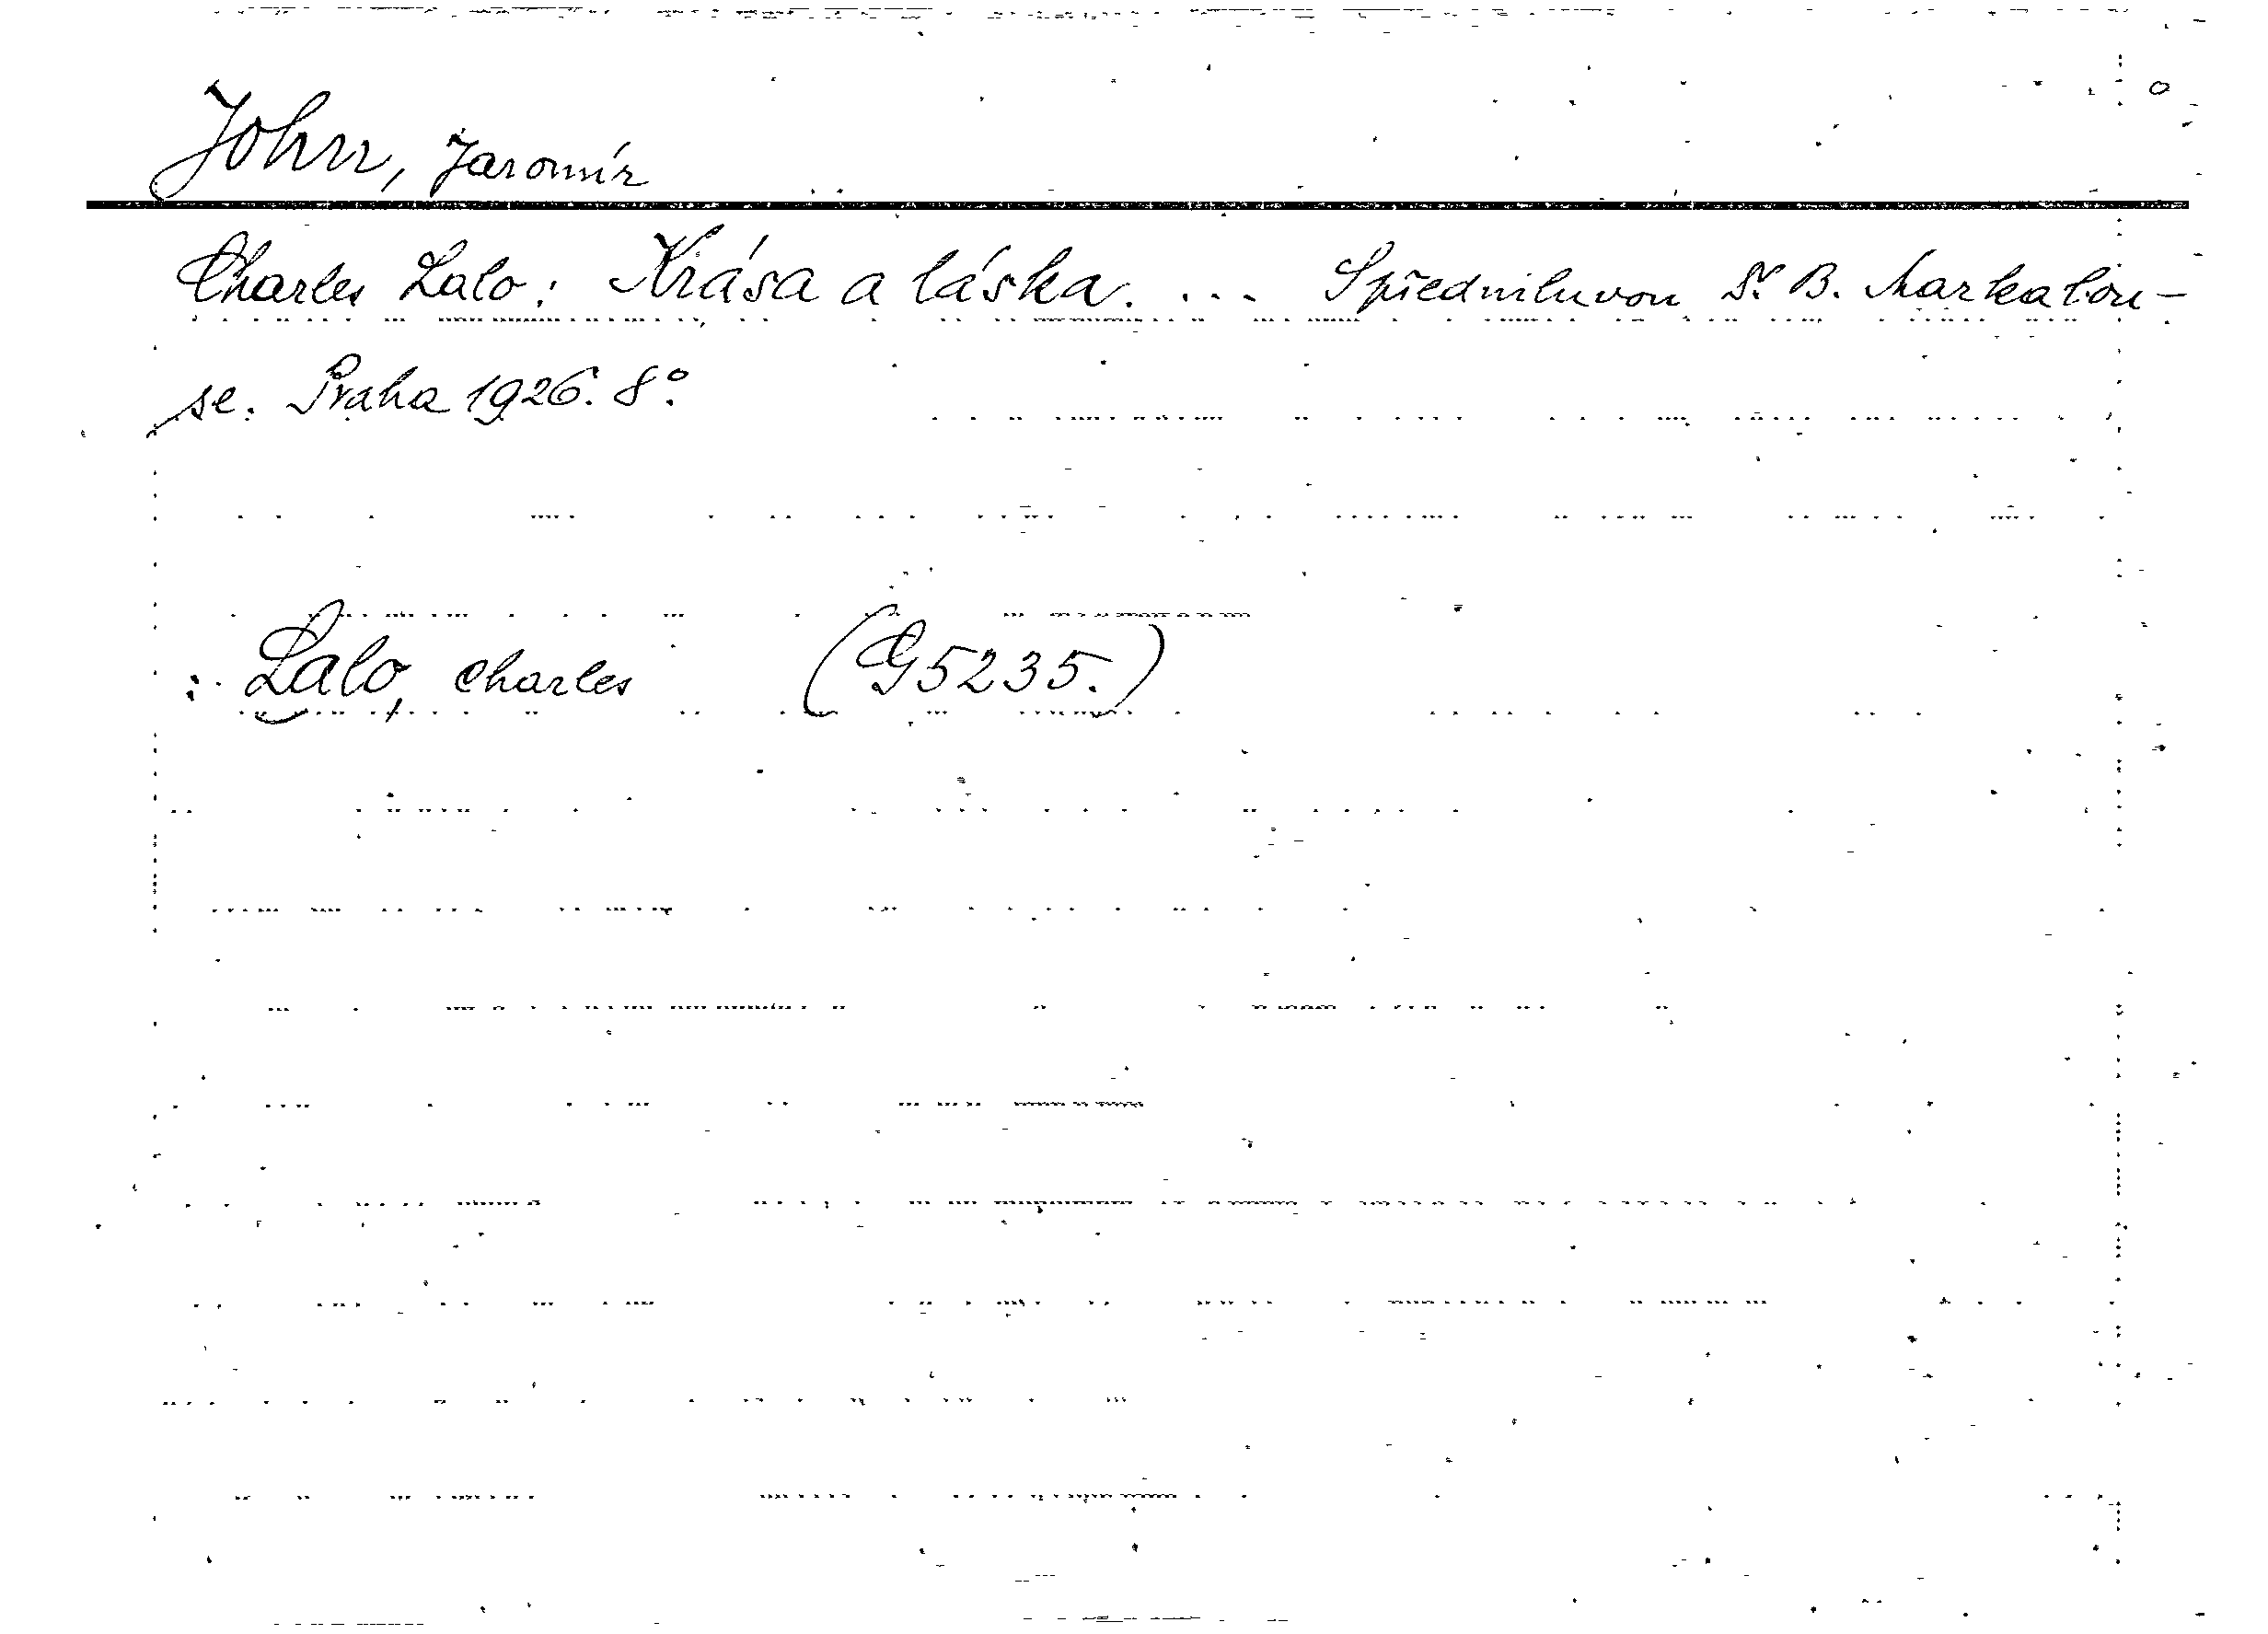 John, Jaromír
Charles Lalo: Krása a láska. ... S předmluvou Dr B. Markalou-
se. Praha 1926. 8°.
:. Lalo, Charles (G 5235.)